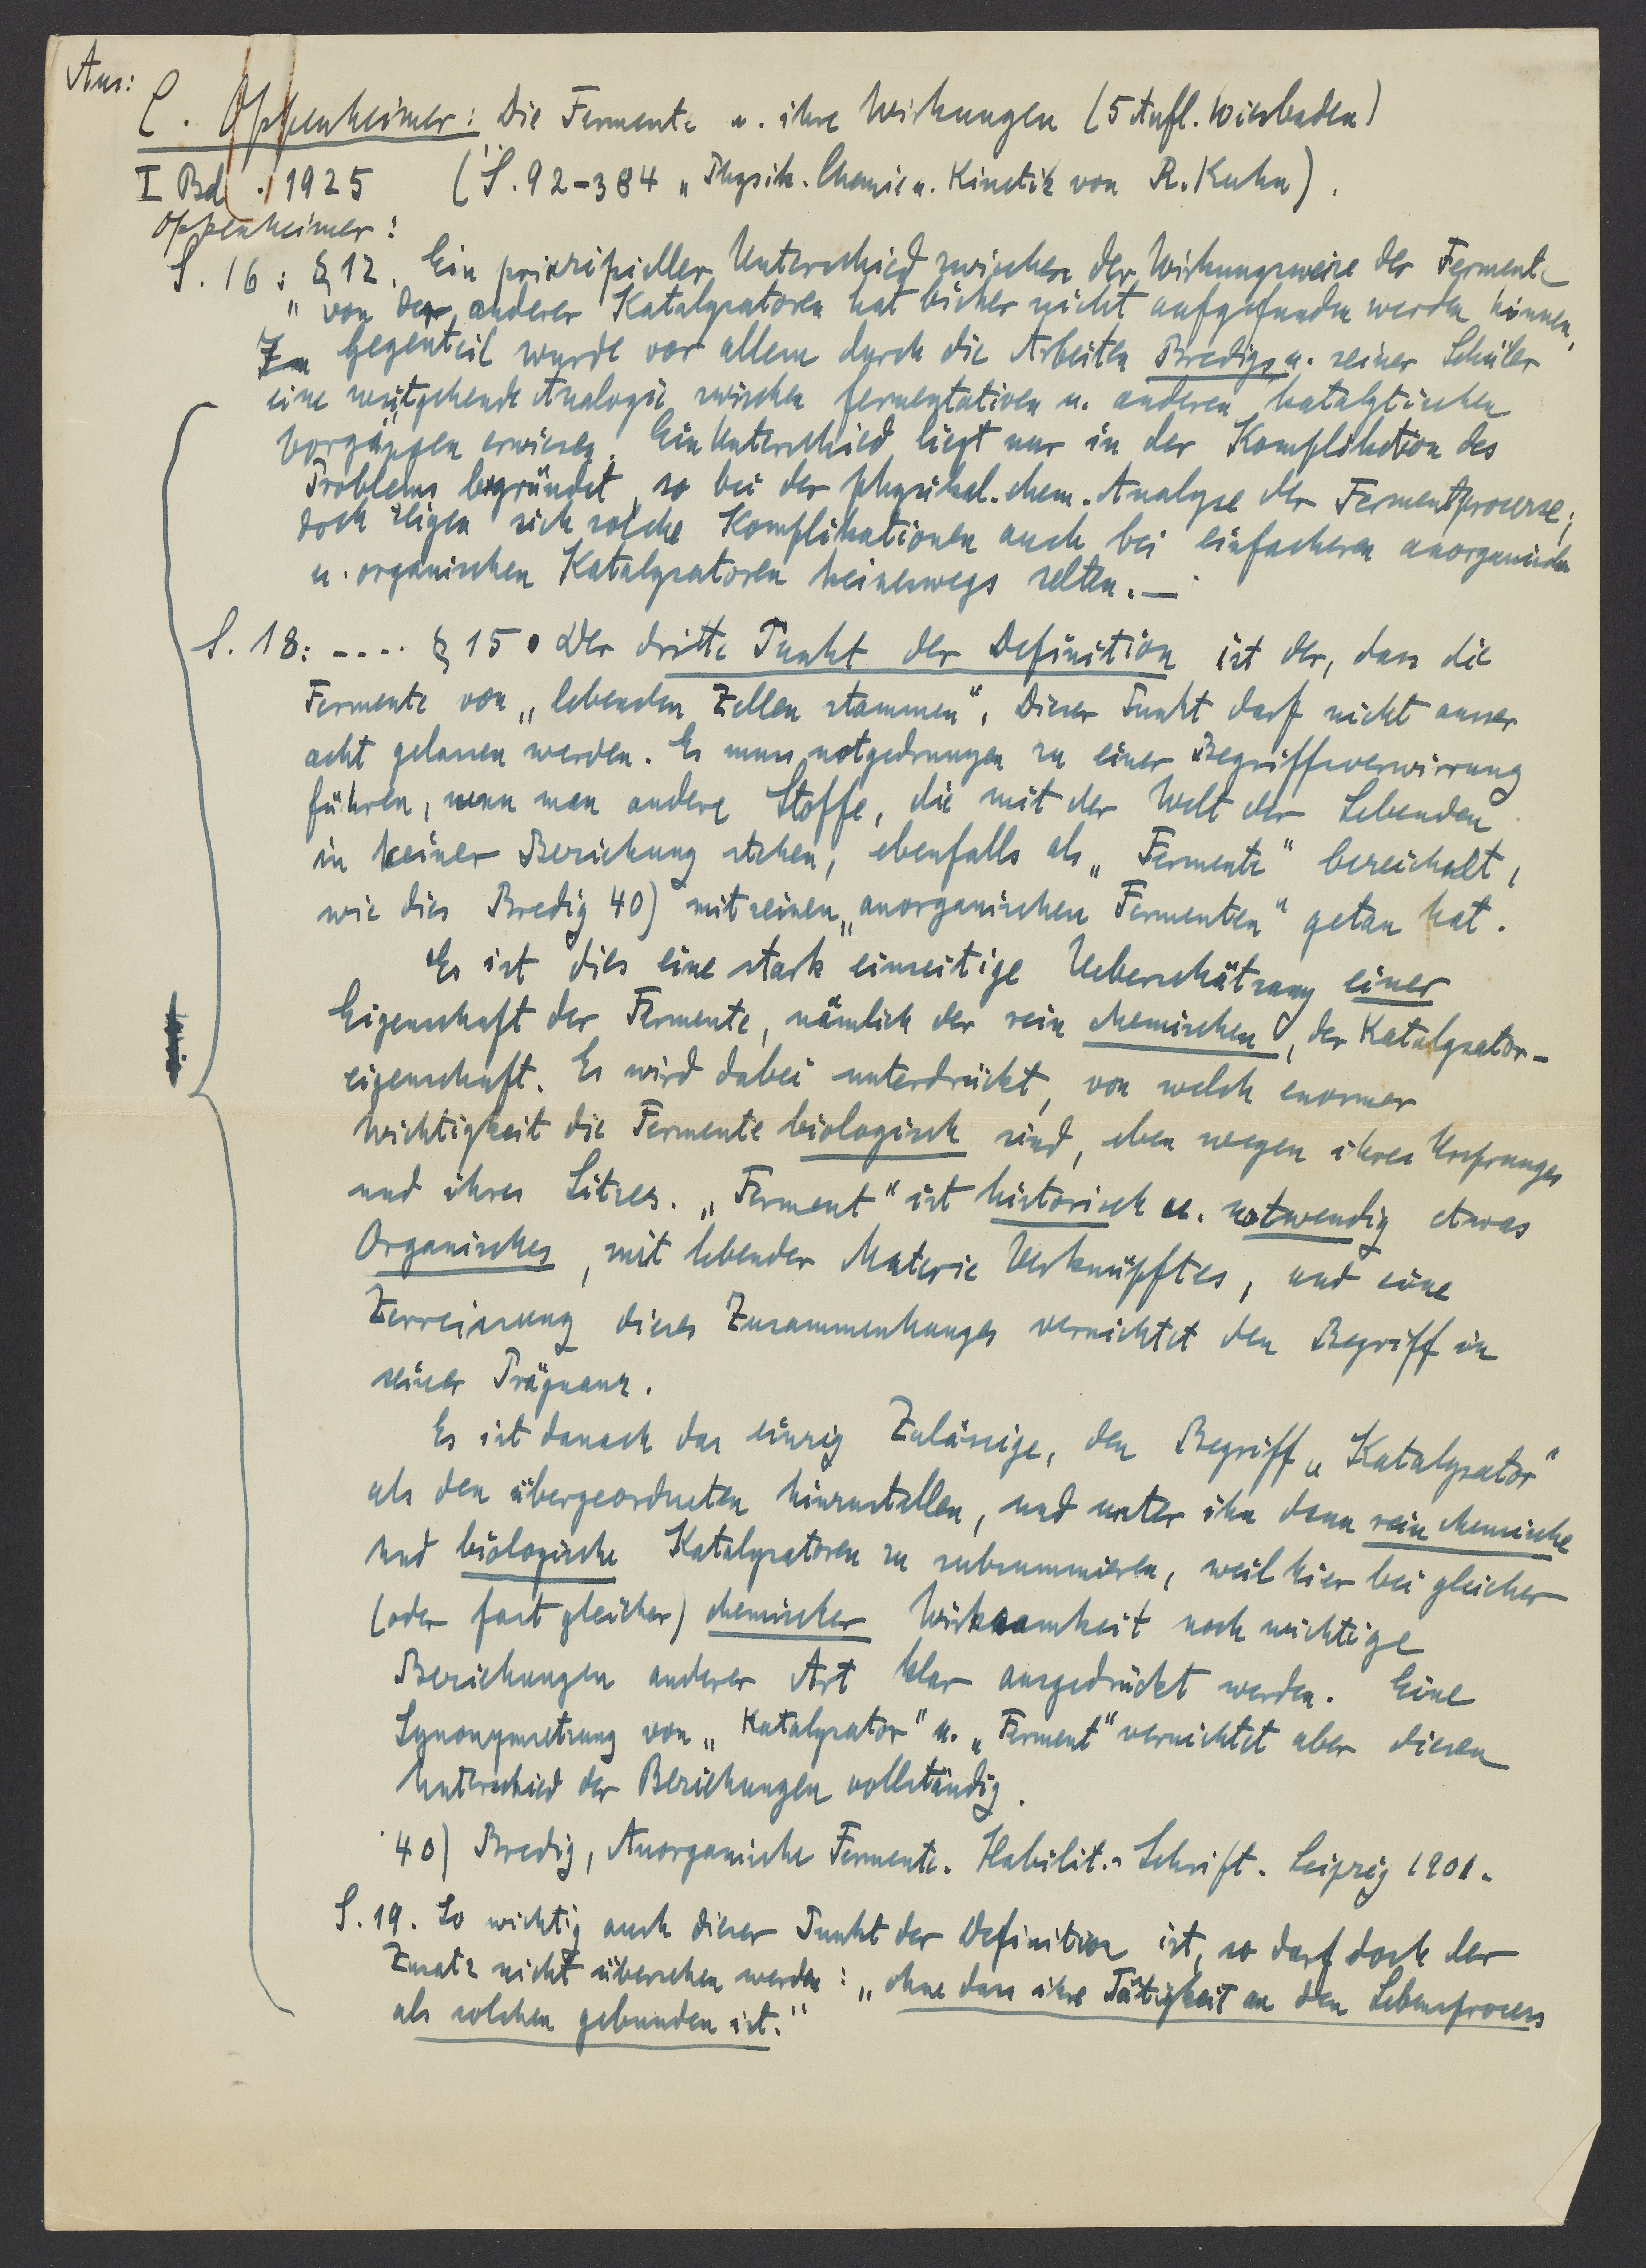 Aus:
C. Oppenheimer: Die Fermente u. ihre Wirkungen (5 Aufl. Wiesbaden)
I Bd. 1925 (S. 92-384 „Physik. Chemie u. Kinetik von R. Kuhn).
Oppenheimer:
S. 16: § 12. Ein prinzipieller Unterschied zwischen der Wirkungsweise der Fermente
" von der anderer Katalysatoren hat bisher nicht aufgefunden werden können,
Im Gegenteil wurde vor allem durch die Arbeiten Bredigs u. seiner Schüler
eine weitgehende Analogie zwischen fermentativen u. anderen katalytischen
Vorgängen erwiesen. Ein Unterschied liegt nur in der Komplikation des
Problems begründet, so bei der physikal. chem. Analyse der Fermentprocesse;
doch zeigen sich solche Komplikationen auch bei einfacheren anorganischen
u. organischen Katalysatoren keineswegs selten. —
S. 18: .... § 15. Der dritte Punkt der Definition ist der, dass die
Fermente von „lebenden Zellen stammen“. Dieser Punkt darf nicht ausser
acht gelassen werden. Es muss notgedrungen zu einer Begriffsverwirrung
führen, wenn man andere Stoffe, die mit der Welt der Lebenden
in keiner Beziehung stehen, ebenfalls als „Fermente“ bezeichnet,
wie dies Bredig 40) mit seinen „anorganischen Fermenten“ getan hat.
Es ist dies eine stark einseitige Ueberschätzung einer
Eigenschaft der Fermente, nämlich der rein chemischen, der Katalysator-
eigenschaft. Es wird dabei unterdrückt, von welch enormer
Wichtigkeit die Fermente biologisch sind, eben wegen ihres Ursprunges
und ihres Sitzes. „Ferment“ ist historisch u. notwendig etwas
Organisches, mit lebender Materie Verknüpftes, und eine
Zerreissung dieses Zusammenhanges vernichtet den Begriff in
seiner Prägnanz.
Es ist danach das einzig Zulässige, den Begriff „Katalysator“
als den übergeordneten hinzustellen, und unter ihn dann rein chemische
und biologische Katalysatoren zu subsummieren, weil hier bei gleicher
(oder fast gleicher) chemischer Wirksamkeit noch wichtige
Beziehungen anderer Art klar ausgedrückt werden. Eine
Synonymsetzung von „Katalysator“ u. „Ferment“ vernichtet aber diesen
Unterschied der Beziehungen vollständig.
40) Bredig, Anorganische Fermente. Habilit.-Schrift. Leipzig 1901.
S. 19. So wichtig auch dieser Punkt der Definition ist, so darf doch der
Zusatz nicht übersehen werden: „ohne dass ihre Tätigkeit an den Lebensprocess
als solchen gebunden ist.“